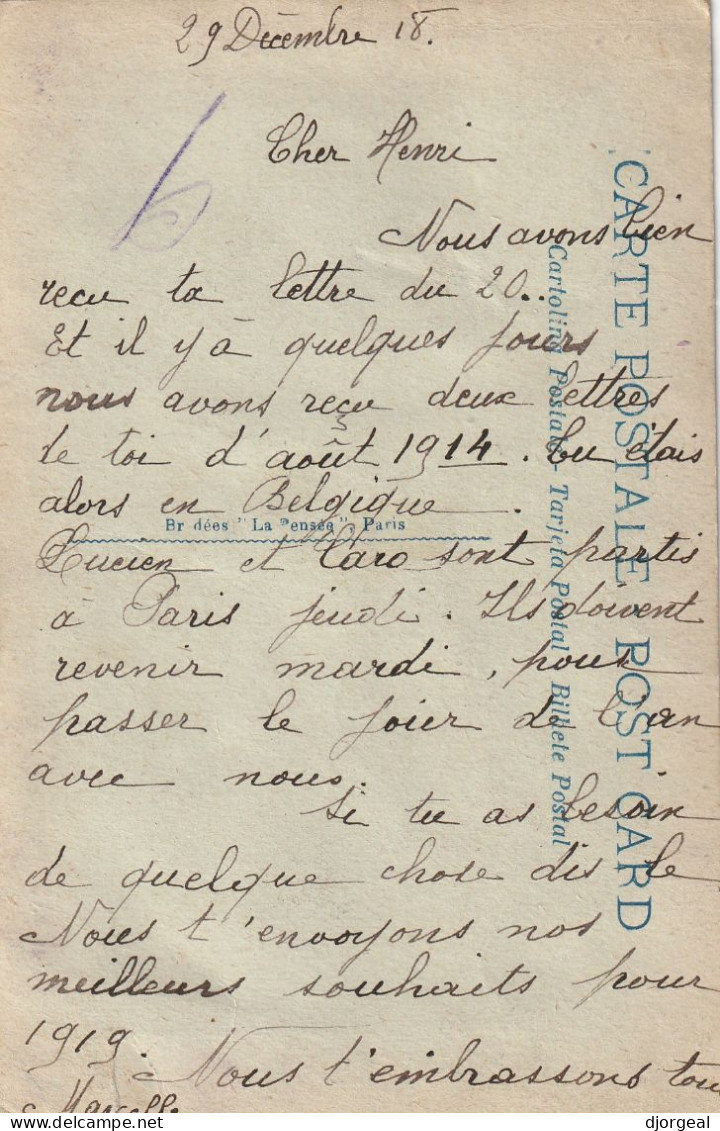 29 Décembre 18.
Cher Henri
Nous avons bien
reçu ta lettre du 20..
Et il y à quelques jours
nous avons reçu deux lettres
de toi d'août 1914. Tu étais
alors en Belgique.
Br dées "La Pensée", Paris
Lucien et Caro sont partis
à Paris jeudi. Ils doivent
revenir mardi, pour
passer le jour de l'an
avec nous.
Si tu as besoin
de quelque chose dis le
Nous t'envoyons nos
meilleurs souhaits pour
1919.
Nous t'embrassons tous
Marcelle
CARTE POSTALE POST CARD
Cartolina Postale - Tarjeta Postal Bilhete Postal
djorgeal